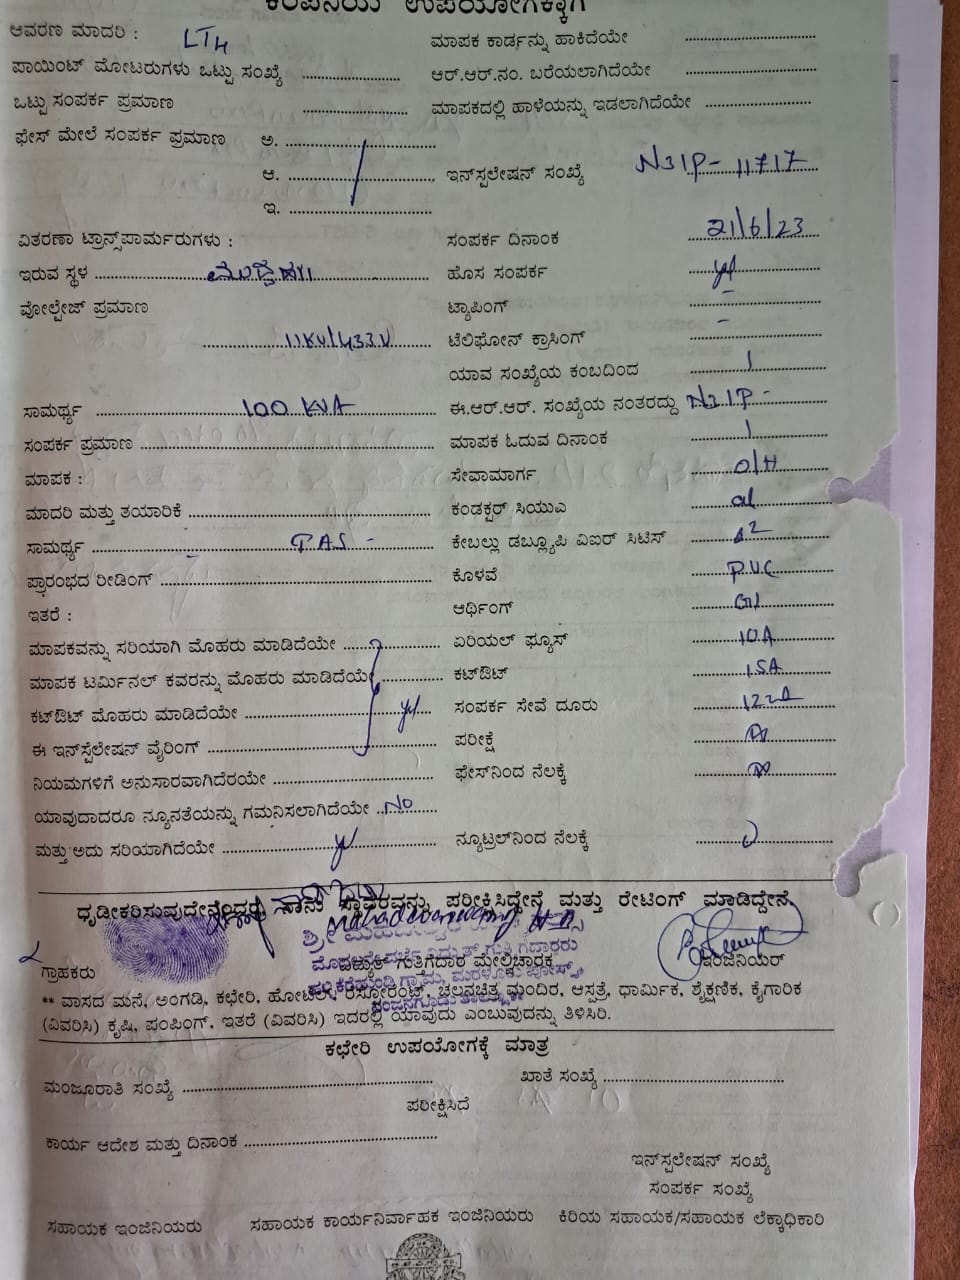 ಕಂಪನಿಯ ಉಪಯೋಗಕ್ಕಾಗಿ
ಆವರಣ ಮಾದರಿ : LT4 ಮಾಪಕ ಕಾರ್ಡನ್ನು ಹಾಕಿದೆಯೇ
ಪಾಯಿಂಟ್ ಮೋಟರುಗಳು ಒಟ್ಟು ಸಂಖ್ಯೆ ಆರ್.ಆರ್.ನಂ. ಬರೆಯಲಾಗಿದೆಯೇ
ಒಟ್ಟು ಸಂಪರ್ಕ ಪ್ರಮಾಣ ಮಾಪಕದಲ್ಲಿ ಹಾಳೆಯನ್ನು ಇಡಲಾಗಿದೆಯೇ
ಫೇಸ್ ಮೇಲೆ ಸಂಪರ್ಕ ಪ್ರಮಾಣ ಅ.
ಆ. ಇನ್‌ಸ್ಪಲೇಷನ್ ಸಂಖ್ಯೆ N3IP-11717
ಇ.
ವಿತರಣಾ ಟ್ರಾನ್ಸ್‌ಪಾರ್ಮರುಗಳು : ಸಂಪರ್ಕ ದಿನಾಂಕ 21/6/23
ಇರುವ ಸ್ಥಳ ಹೊಸ ಸಂಪರ್ಕ
ವೋಲ್ಟೇಜ್ ಪ್ರಮಾಣ ಟ್ಯಾಪಿಂಗ್ -
11KV/433V ಟೆಲಿಫೋನ್ ಕ್ರಾಸಿಂಗ್ -
ಯಾವ ಸಂಖ್ಯೆಯ ಕಂಬದಿಂದ 1
ಸಾಮರ್ಥ್ಯ 100 KVA ಈ.ಆರ್.ಆರ್. ಸಂಖ್ಯೆಯ ನಂತರದ್ದು N3IP-
ಸಂಪರ್ಕ ಪ್ರಮಾಣ ಮಾಪಕ ಓದುವ ದಿನಾಂಕ 1
ಮಾಪಕ : ಸೇವಾಮಾರ್ಗ O/H
ಮಾದರಿ ಮತ್ತು ತಯಾರಿಕೆ ಕಂಡಕ್ಟರ್ ಸಿಯುಎ al
ಸಾಮರ್ಥ್ಯ ಕೇಬಲ್ಲು ಡಬ್ಲ್ಯೂಪಿ ವಿಐರ್ ಸಿಟಿಸ್
ಪ್ರಾರಂಭದ ರೀಡಿಂಗ್ ಕೊಳವೆ P.V.C
ಇತರೆ : ಆರ್ಥಿಂಗ್ GI
ಮಾಪಕವನ್ನು ಸರಿಯಾಗಿ ಮೊಹರು ಮಾಡಿದೆಯೇ ಏರಿಯಲ್ ಫ್ಯೂಸ್ 10A
ಮಾಪಕ ಟರ್ಮಿನಲ್ ಕವರನ್ನು ಮೊಹರು ಮಾಡಿದೆಯೇ ಕಟ್‌ಔಟ್ 15A
ಕಟ್‌ಔಟ್ ಮೊಹರು ಮಾಡಿದೆಯೇ ಸಂಪರ್ಕ ಸೇವೆ ದೂರು
ಈ ಇನ್‌ಸ್ಟೆಲೇಷನ್ ವೈರಿಂಗ್ ಪರೀಕ್ಷೆ
ನಿಯಮಗಳಿಗೆ ಅನುಸಾರವಾಗಿದೆರಯೇ ಫೇಸ್‌ನಿಂದ ನೆಲಕ್ಕೆ
ಯಾವುದಾದರೂ ನ್ಯೂನತೆಯನ್ನು ಗಮನಿಸಲಾಗಿದೆಯೇ No
ಮತ್ತು ಅದು ಸರಿಯಾಗಿದೆಯೇ ನ್ಯೂಟ್ರಲ್‌ನಿಂದ ನೆಲಕ್ಕೆ
ಧೃಡೀಕರಿಸುವುದೇನೆಂದರೆ, ನಾನು ಸ್ಥಾವರವನ್ನು ಪರೀಕ್ಷಿಸಿದ್ದೇನೆ ಮತ್ತು ರೇಟಿಂಗ್ ಮಾಡಿದ್ದೇನೆ.
ಗ್ರಾಹಕರು ವಿದ್ಯುತ್ ಗುತಿಗೆದಾರ ಮೇಲ್ವಿಚಾರಕ ಇಂಜಿನಿಯರ್
** ವಾಸದ ಮನೆ, ಅಂಗಡಿ, ಕಛೇರಿ, ಹೋಟೆಲ್, ರೆಸ್ಟೋರೆಂಟ್, ಚಲನಚಿತ್ರ ಮಂದಿರ, ಆಸ್ಪತ್ರೆ, ಧಾರ್ಮಿಕ, ಶೈಕ್ಷಣಿಕ, ಕೈಗಾರಿಕ
(ವಿವರಿಸಿ) ಕೃಷಿ, ಪಂಪಿಂಗ್, ಇತರೆ (ವಿವರಿಸಿ) ಇದರಲ್ಲಿ ಯಾವುದು ಎಂಬುವುದನ್ನು ತಿಳಿಸಿರಿ.
ಕಛೇರಿ ಉಪಯೋಗಕ್ಕೆ ಮಾತ್ರ
ಮಂಜೂರಾತಿ ಸಂಖ್ಯೆ ಖಾತೆ ಸಂಖ್ಯೆ
ಪರೀಕ್ಷಿಸಿದೆ
ಕಾರ್ಯ ಆದೇಶ ಮತ್ತು ದಿನಾಂಕ
ಇನ್‌ಸ್ಪಲೇಷನ್ ಸಂಖ್ಯೆ
ಸಂಪರ್ಕ ಸಂಖ್ಯೆ
ಸಹಾಯಕ ಇಂಜಿನಿಯರು ಸಹಾಯಕ ಕಾರ್ಯನಿರ್ವಾಹಕ ಇಂಜಿನಿಯರು ಕಿರಿಯ ಸಹಾಯಕ/ಸಹಾಯಕ ಲೆಕ್ಕಾಧಿಕಾರಿ